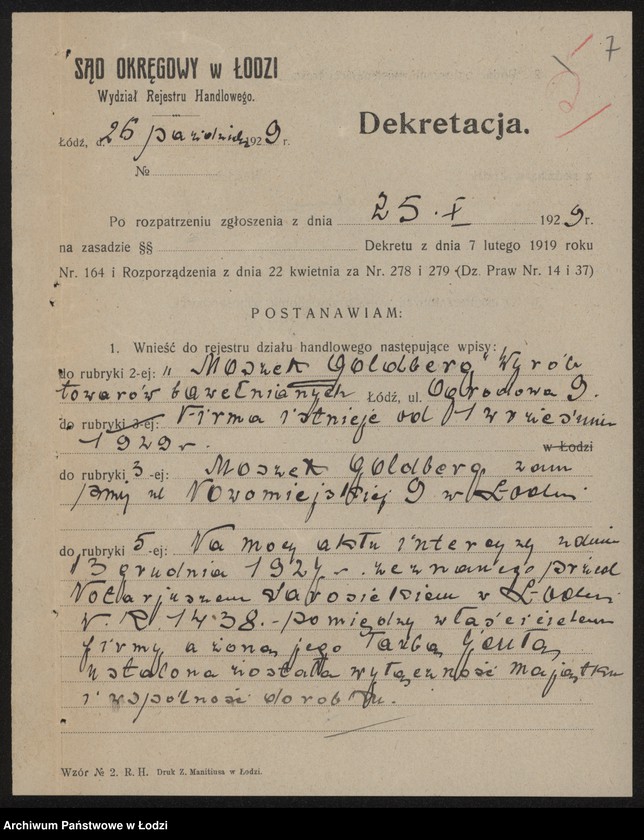 7
SĄD OKRĘGOWY w ŁODZI
Wydział Rejestru Handlowego.
Dekretacja.
Łódź, d. 26 październik 1929 r.
№
Po rozpatrzeniu zgłoszenia z dnia 25.X 1929 r.
na zasadzie §§ Dekretu z dnia 7 lutego 1919 roku
Nr. 164 i Rozporządzenia z dnia 22 kwietnia za Nr. 278 i 279 (Dz. Praw Nr. 14 i 37)
POSTANAWIAM:
1. Wnieść do rejestru działu handlowego następujące wpisy:
do rubryki 2-ej: „Moszek Goldberg" Wyrób
towarów bawełnianych Łódź, ul. Ogrodowa 9.
do rubryki 3-ej: Firma istnieje od 1 wrześnie
1929 r. w Łodzi
do rubryki 3-ej: Moszek Goldberg zam
przy ul Nowomiejskiej 9 w Łodzi
do rubryki 5-ej: Na mocy aktu intercyzy z dnia
13 grudnia 1927 r. zeznanego przed
Notarjuszem w Łodzi
N. R. 1438. pomiędzy właścicielem
firmy a żoną jego
ustalona została wyłączność majątku
i wspólność dorobku.
Wzór № 2. R. H. Druk Z. Manitiusa w Łodzi.
Archiwum Państwowe w Łodzi